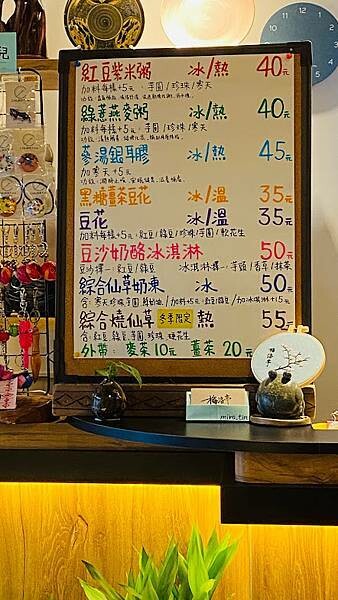 兒
紅豆紫米粥 冰/熱 40元
加料每樣+5元、芋圓/珍珠/寒天
綠薏燕麥粥 冰/熱 40元
加料每樣+5元、芋圓/珍珠/寒天
蔘湯銀耳膠 冰/熱 45元
加寒天+5元
黑糖薑朵豆花 冰/溫 35元
豆花 冰/溫 35元
加料每樣+5元、紅豆/綠豆/珍珠/芋圓/軟花生
豆沙奶酪冰淇淋 50元
豆沙擇一:紅豆/綠豆 冰淇淋擇一:芋頭/香草/抹茶
綜合仙草奶凍 冰 50元
綜合燒仙草 冬季限定 熱 55元
含:紅豆、綠豆、芋圓、珍珠、軟花生
外帶: 麥茶10元 薑茶20元
mira.tin